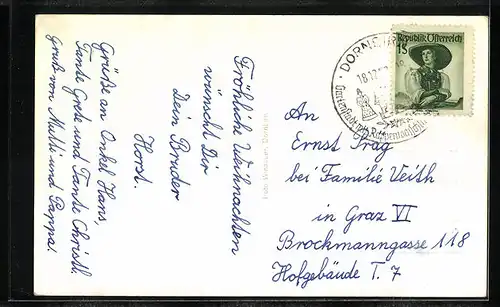 Fröhliche Weihnachten
wünscht Dir
Dein Bruder
Horst.
Grüße an Onkel Hans,
Tante Grete und Tante Christl
Gruß von Mutti und Pappa.
Republik Österreich
1S
DORNBIRN
18.12.
Gartenstadt
An
Ernst Prag
bei Familie Veith
in Graz VI
Brockmanngasse 118
Hofgebäude T. 7